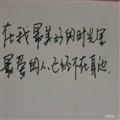 在我最美好的时光里
最爱的人已经不在身边